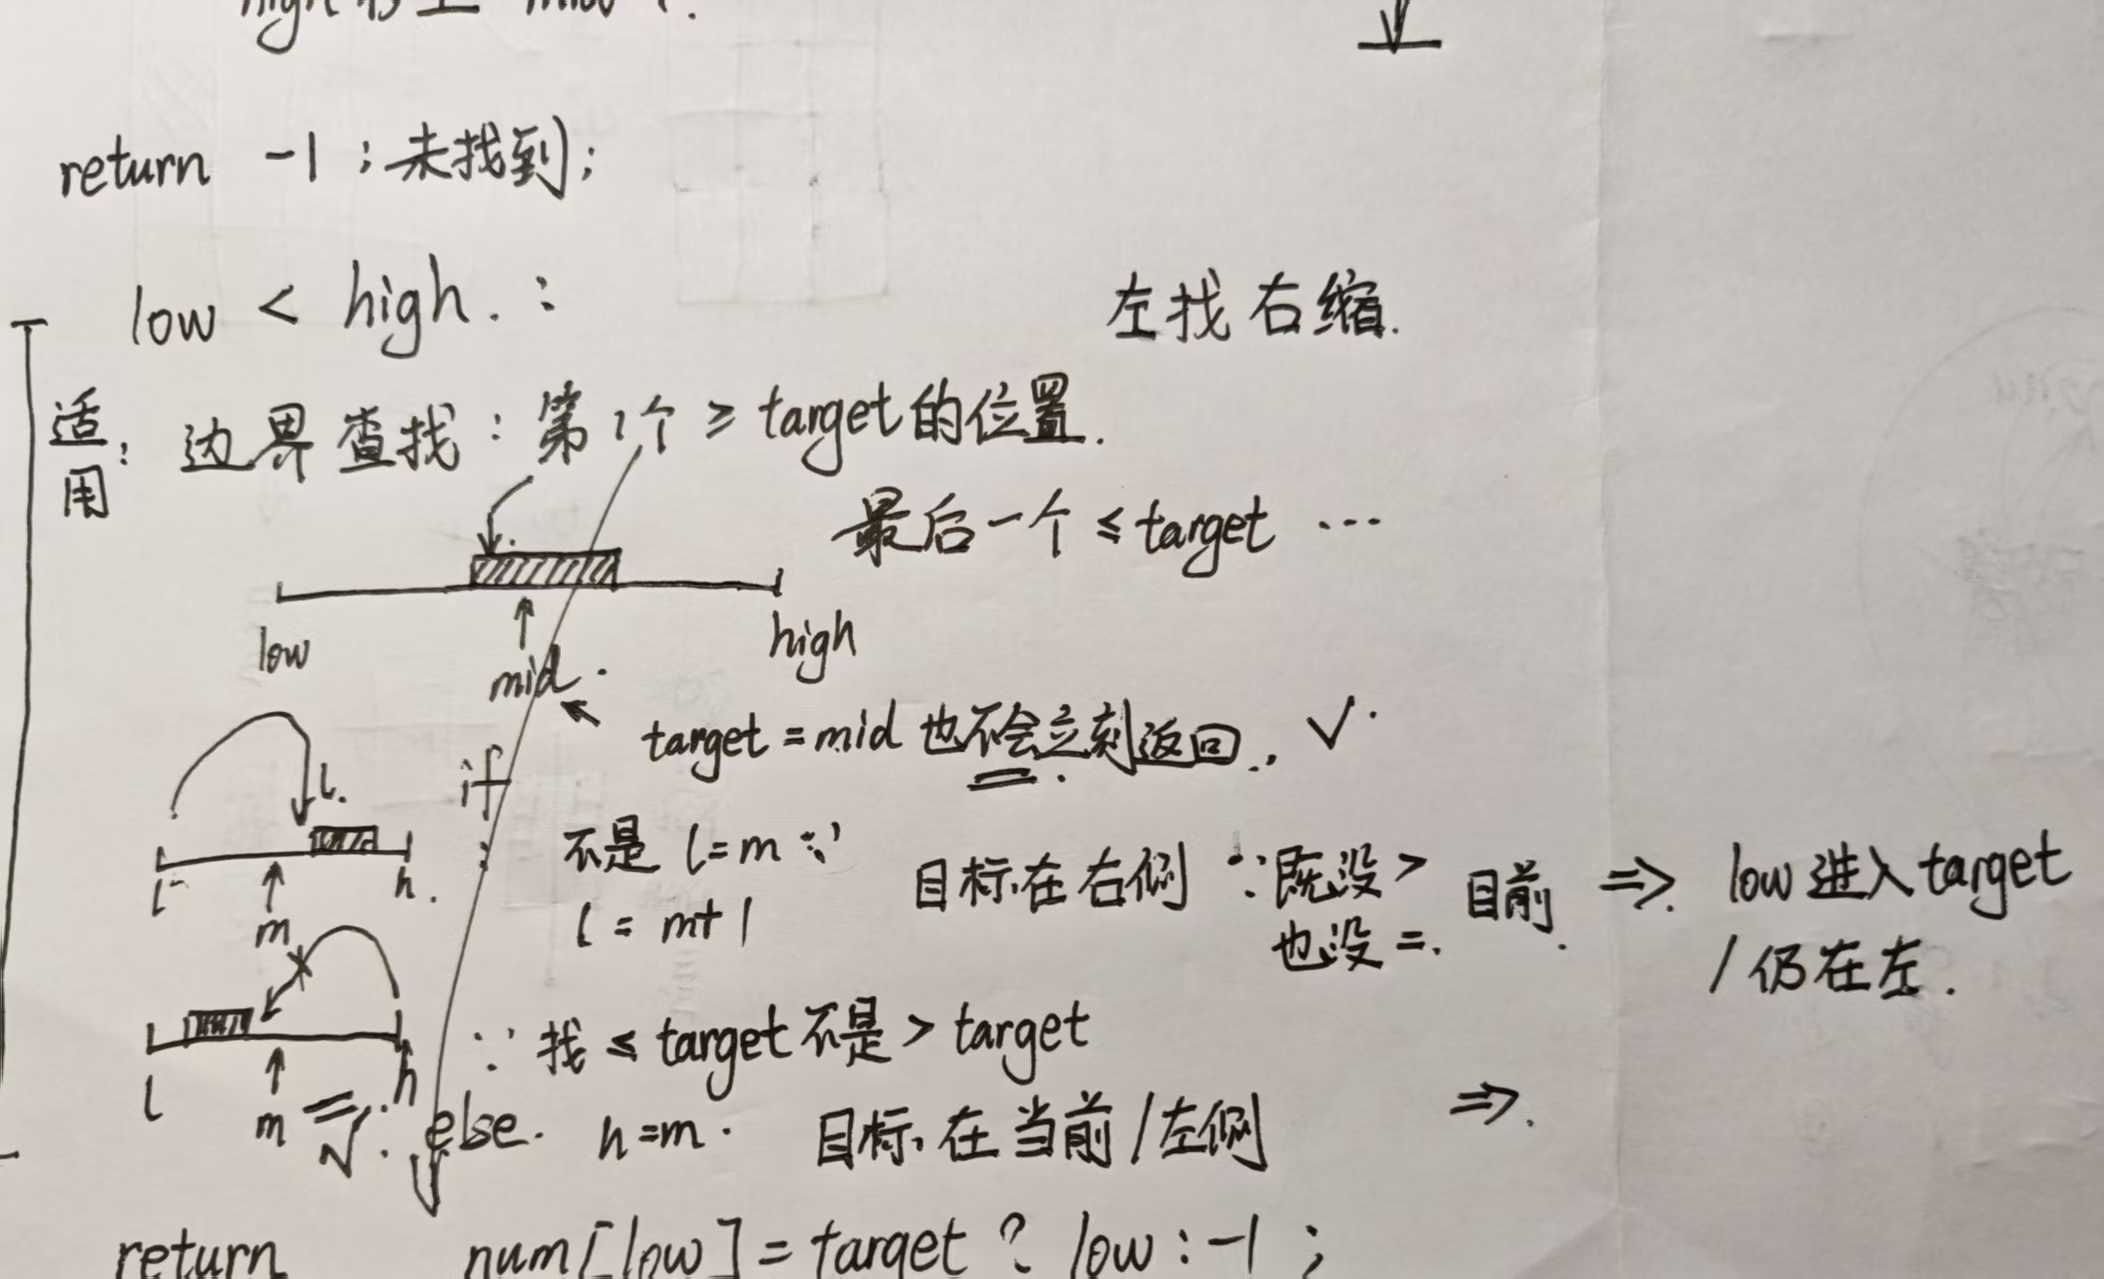 high 移至 mid
return -1 ; 未找到;
low < high. :
左找 右缩.
适用: 边界查找: 第1个 ≥ target的位置.
最后一个 ≤ target ...
low
mid.
high
target = mid 也不会立刻返回. ✓.
l.
if
l
m
h.
: 不是 l=m ∵
l = m+1
目标在右侧 ∵ 既没 >
也没 =.
目前. ⇒ low 进入 target
/ 仍在左.
l
m
h
∵ 找 ≤ target 不是 > target
else. h=m. 目标在当前/左侧 ⇒.
return num[low] = target ? low : -1 ;